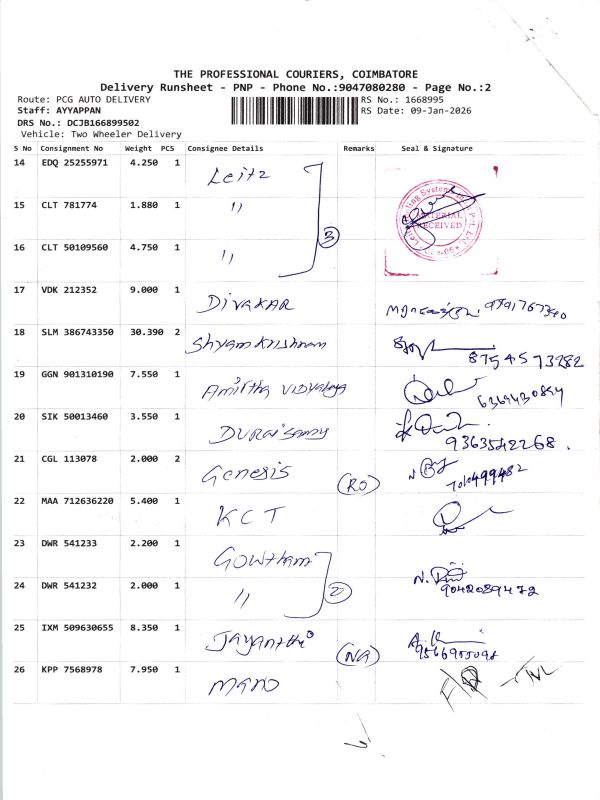 THE PROFESSIONAL COURIERS, COIMBATORE
Delivery Runsheet - PNP - Phone No.:9047080280 - Page No.:2
Route: PCG AUTO DELIVERY RS No.: 1668995
Staff: AYYAPPAN RS Date: 09-Jan-2026
DRS No.: DCJB166899502
Vehicle: Two Wheeler Delivery
S No Consignment No Weight PCS Consignee Details Remarks Seal & Signature
14 EDQ 25255971 4.250 1 Leitz
15 CLT 781774 1.880 1 "
MATERIAL RECEIVED
3
16 CLT 50109560 4.750 1 "
17 VDK 212352 9.000 1 Divakar 9791767340
18 SLM 386743350 30.390 2 Shyam Krishnan 8754573282
19 GGN 901310190 7.550 1 Amirtha Vidyalaya 6369430894
20 SIK 50013460 3.550 1 Duraisamy 9363542268.
21 CGL 113078 2.000 2 Genesis RO
22 MAA 712636220 5.400 1 KCT
23 DWR 541233 2.200 1 Gowtham
2
24 DWR 541232 2.000 1 " 9042029472
25 IXM 509630655 8.350 1 Jayanthi NA
26 KPP 7568978 7.950 1 Mano